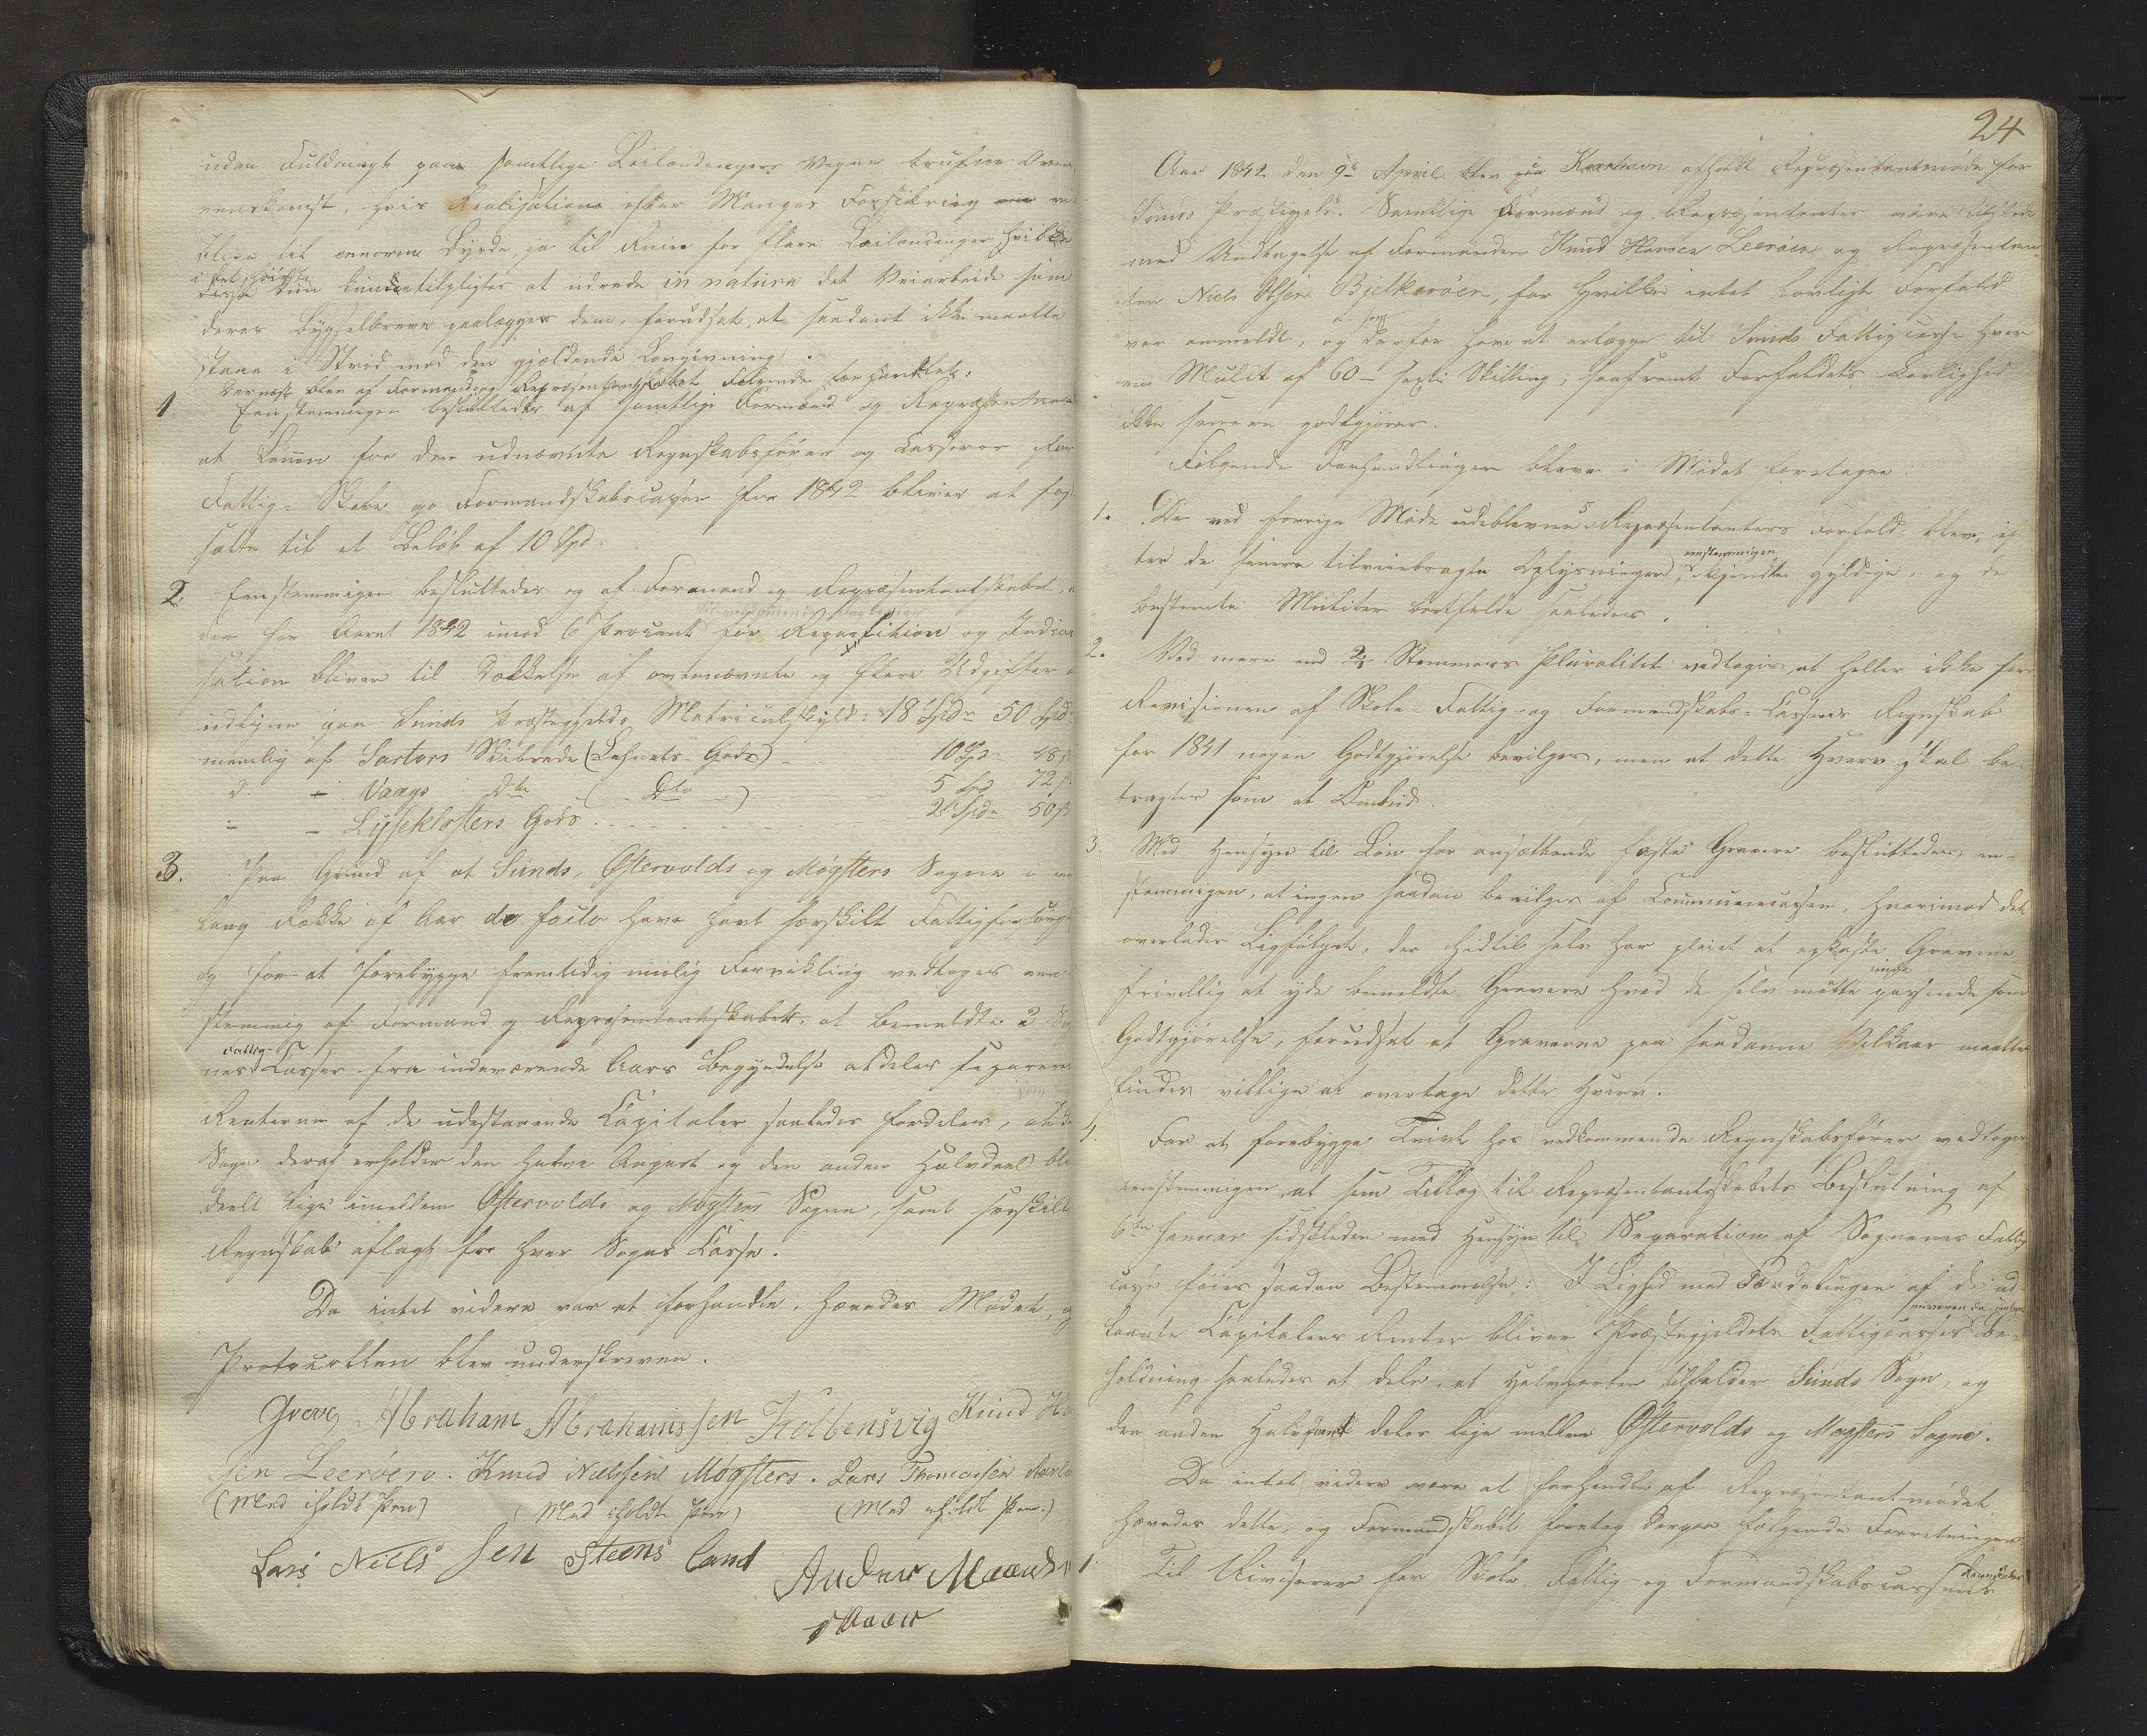 uden Fuldmagt paa samtlige Leilændingers Vegne trufne Over
eenskomst, hvis Realisation efter Manges Forsikring vil
blive til enorm Byrde, ja til Ruin for flere Leilændinger hvilke
i det høieste
kun kunde tilpligtes at udrede in natura det Priarbeide som
deres Bygselbreve paalægger dem, forudsat, at saadant ikke maatte
staae i Strid med den gjældende Lovgivning.
Dernæst blev af Formænd og Repræsentantskabet Følgende forhandlet:
1 Eenstemmigen besluttedes af samtlige Formænd og Repræsentanter
at Lønnen for den udnævnte Regnskabsfører og Casserer for
Fattig- Skole og Formandskabscassen for 1842 bliver at fast
sætte til et Beløb af 10 Spd.
2 Eenstemmigen besluttedes og af Formænd og Repræsentantskabet, at
der for Aaret 1842 imod 6 Procent for Repartition og Indcas
sation bliver til Dækkelse af ovennævnte og flere Udgifter at
udligne paa Sunds Præstegjelds Matriculskyld: 18 Spdr 50 s
nemlig af Sartors Skibrede (Lehnets-Gods) 10 Spd 48 s
d - Vaags Dto (Dto) 5 Spd 72 s
- - Lyseklosters Gods 2 Spdr 50 s
3. Paa Grund af at Sunds, Østervolds og Møgsters Sogne i en
lang Række af Aar de facto have havt særskilt Fattigforsørg
og for at forebygge fremtidig mulig Forvikling vedtoges een
stemmig af Formænd og Repræsentantskabet, at bemeldte 3 Sog
Fattig-
nes Casser fra indeværende Aars Begyndelse aldeles separeres
Renterne af de udestaaende Capitaler saaledes fordeles, at
Sogn deraf erholder den halve Anpart og den anden Halvdeel bli
deelt lige imellem Østervolds og Møgsters Sogne, samt særskilt
Regnskab aflagt for hver Sogns Casse.
Da intet videre var at forhandle, hævedes Mødet, og
Protocollen blev underskreven.
Greve Abraham Abrahamssen Kolbensvig Knud Ha
sen Leerøen. Knud Nielssen Møgster. Lars Thomassen
(Med iholdt Pen) (Med iholdt Pen) (Med iholdt Pen.)
Lars Niels sen Steens land Anders

24
Aar 1842 den 9de April blev paa Korshavn afholdt Repræsentantmøde for
Sunds Præstegjeld. Samtlige Formænd og Repræsentanter vare tilstede
med Undtagelse af Formanden Knud Hansen Leerøen og Repræsentan
ten Niels Olsen Bjelkerøen, for hvilke intet lovligt Forfald
var anmeldt, og derfor have at erlægge til Sunds Fattigcasse hver
en Mulct af 60 - sexti Skilling, saafremt Forfaldets Lovlighed
ikke senere godtgjøres.
Følgende Forhandlinger bleve i Mødet foretagne:
1. De ved forrige Møde udeblevne 5 Repræsentanters Forfald bleve, ef
eenstemmigen
ter de senere tilveiebragte Oplysninger, kjendte gyldige, og de
bestemte Mulcter bortfalde saaledes.
2. Ved mere end 2/3 Stemmers Pluralitet vedtoges, at heller ikke for
Revisionen af Skole- Fattig- og Formandskabs-Cassens Regnskab
for 1841 nogen Godtgjørelse bevilges, men at dette Hverv skal be-
tragtes som et Ombud.
3. Med Hensyn til Løn for ansættende faste Gravere besluttedes een-
stemmigen, at ingen saadan bevilges af Communecassen, hvorimod det
overlades Ligfølget, der hidtil selv har pleiet at opkaste Gravene
frivillig at yde bemeldte Gravere hvad de selv maatte finde passende som
Godtgjørelse, forudsat at Graverne paa saadanne Vilkaar maatte
findes villige at overtage dette Hverv.
4. For at forebygge Tvivl hos vedkommende Regnskabsfører vedtoges
eenstemmigen, at som Tillæg til Repræsentantskabets Beslutning af
6te Januar sidstleden med Hensyn til Separation af Sognenes Fattig
casse føies saadan Bestemmelse: I Lighed med Fordelingen af de ud-
laante Capitalers Renter bliver Præstegjeldets Fattigcasses be-
holdning saaledes at dele, at Halvparten tilfalder Sunds Sogn, og
den anden Halvpart deles lige mellem Østervolds og Møgsters Sogne.
Da intet videre var at forhandle af Repræsentantmødet
hævedes dette, og Formandskabet foretog derpaa følgende Forretninger
1. Til Revisorer for Skole- Fattig- og Formandskabscassens
Regnskaber